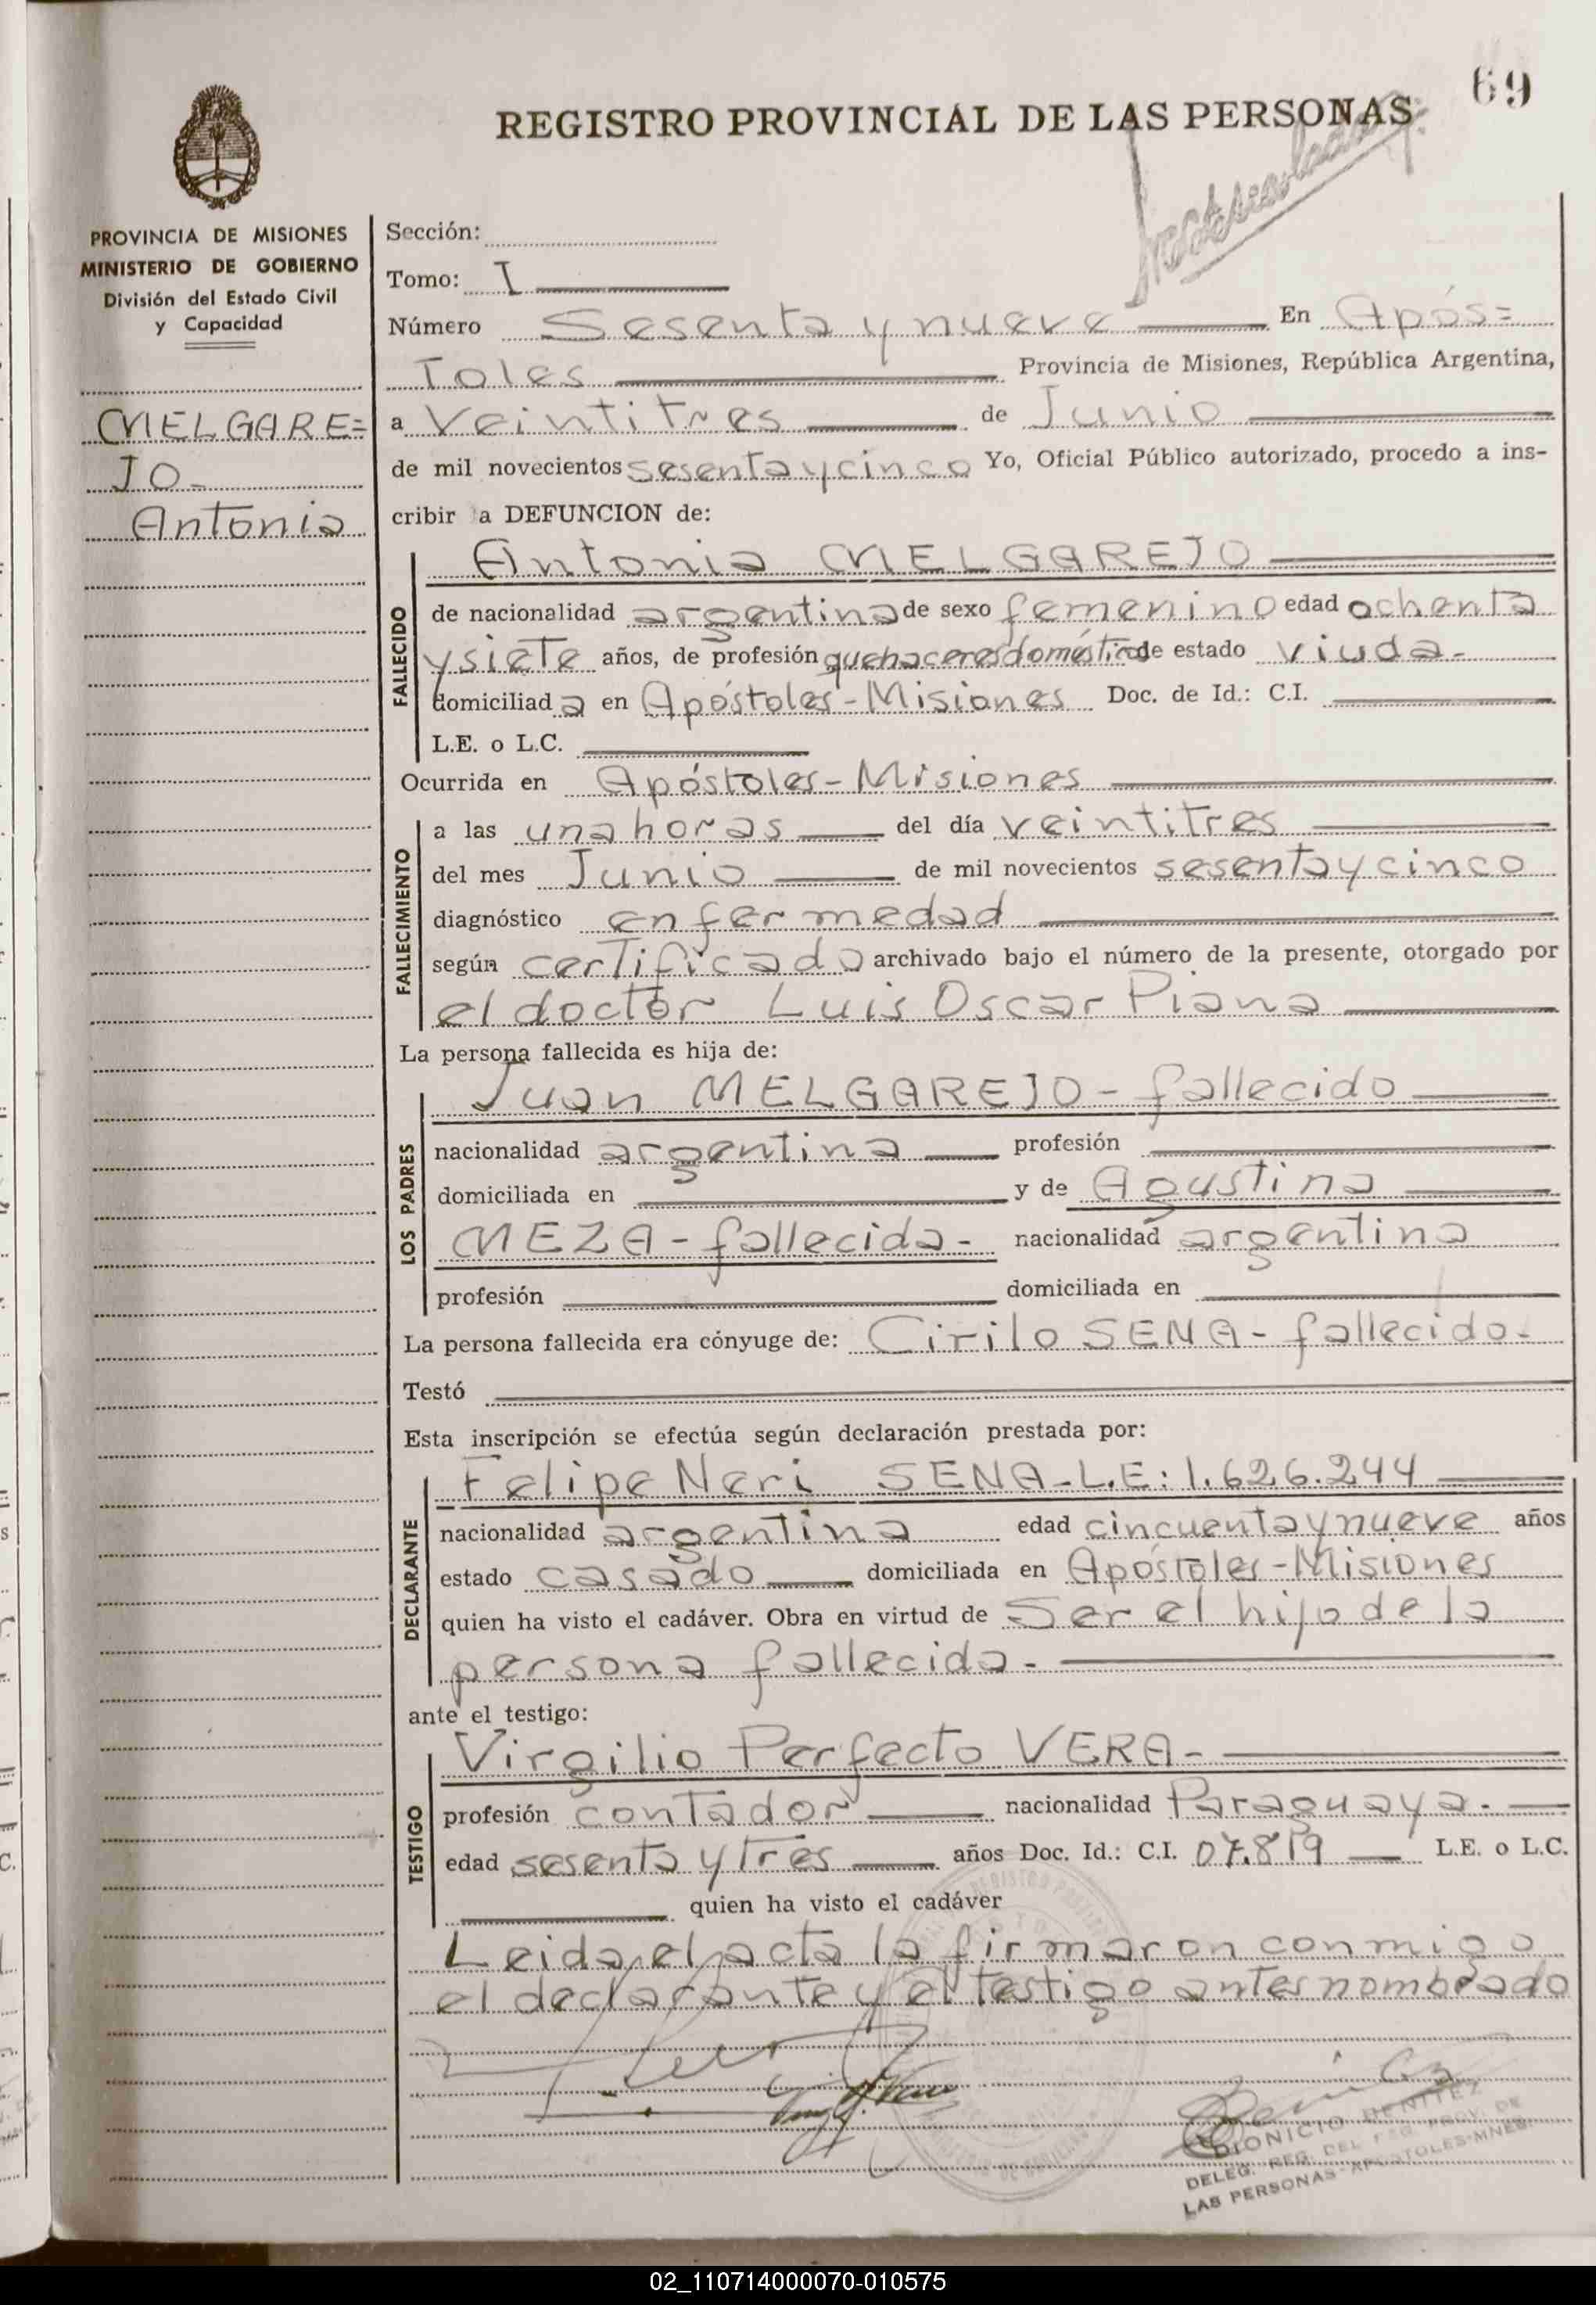 69
REGISTRO PROVINCIAL DE LAS PERSONAS
PROVINCIA DE MISIONES
MINISTERIO DE GOBIERNO
División del Estado Civil
y Capacidad
MELGARE=
JO-
Antonia
Sección:
Tomo: I
Número Sesenta y nueve En Após=
Toles Provincia de Misiones, República Argentina,
a Veintitres de Junio
de mil novecientos sesenta y cinco Yo, Oficial Público autorizado, procedo a ins-
cribir a DEFUNCION de:
Antonia MELGAREJO
FALLECIDO
de nacionalidad argentina de sexo femenino edad ochenta
y siete años, de profesión quehaceres domésticos de estado viuda-
domiciliada en Apóstoles-Misiones Doc. de Id.: C.I.
L.E. o L.C.
Ocurrida en Apóstoles-Misiones
FALLECIMIENTO
a las una horas del día veintitres
del mes Junio de mil novecientos sesenta y cinco
diagnóstico enfermedad
según certificado archivado bajo el número de la presente, otorgado por
el doctor Luis Oscar Piana
La persona fallecida es hija de:
Juan MELGAREJO-fallecido
LOS PADRES
nacionalidad argentina profesión
domiciliada en y de Agustina
MEZA-fallecida- nacionalidad argentina
profesión domiciliada en
La persona fallecida era cónyuge de: Cirilo SENA-fallecido-
Testó
Esta inscripción se efectúa según declaración prestada por:
Felipe Neri SENA-L.E: 1.626.244
DECLARANTE
nacionalidad argentina edad cincuenta y nueve años
estado casado domiciliada en Apóstoles-Misiones
quien ha visto el cadáver. Obra en virtud de Ser el hijo de la
persona fallecida-
ante el testigo:
Virgilio Perfecto VERA-
TESTIGO
profesión contador nacionalidad Paraguaya-
edad sesenta y tres años Doc. Id.: C.I. 07.819 L.E. o L.C.
quien ha visto el cadáver
Leida el acta la firmaron conmigo
el declarante y el testigo antes nombrado
DIONICIO BENITEZ
DELEG. REG. DEL REG. PROV. DE
LAS PERSONAS-APOSTOLES-MNES.
02_110714000070-010575